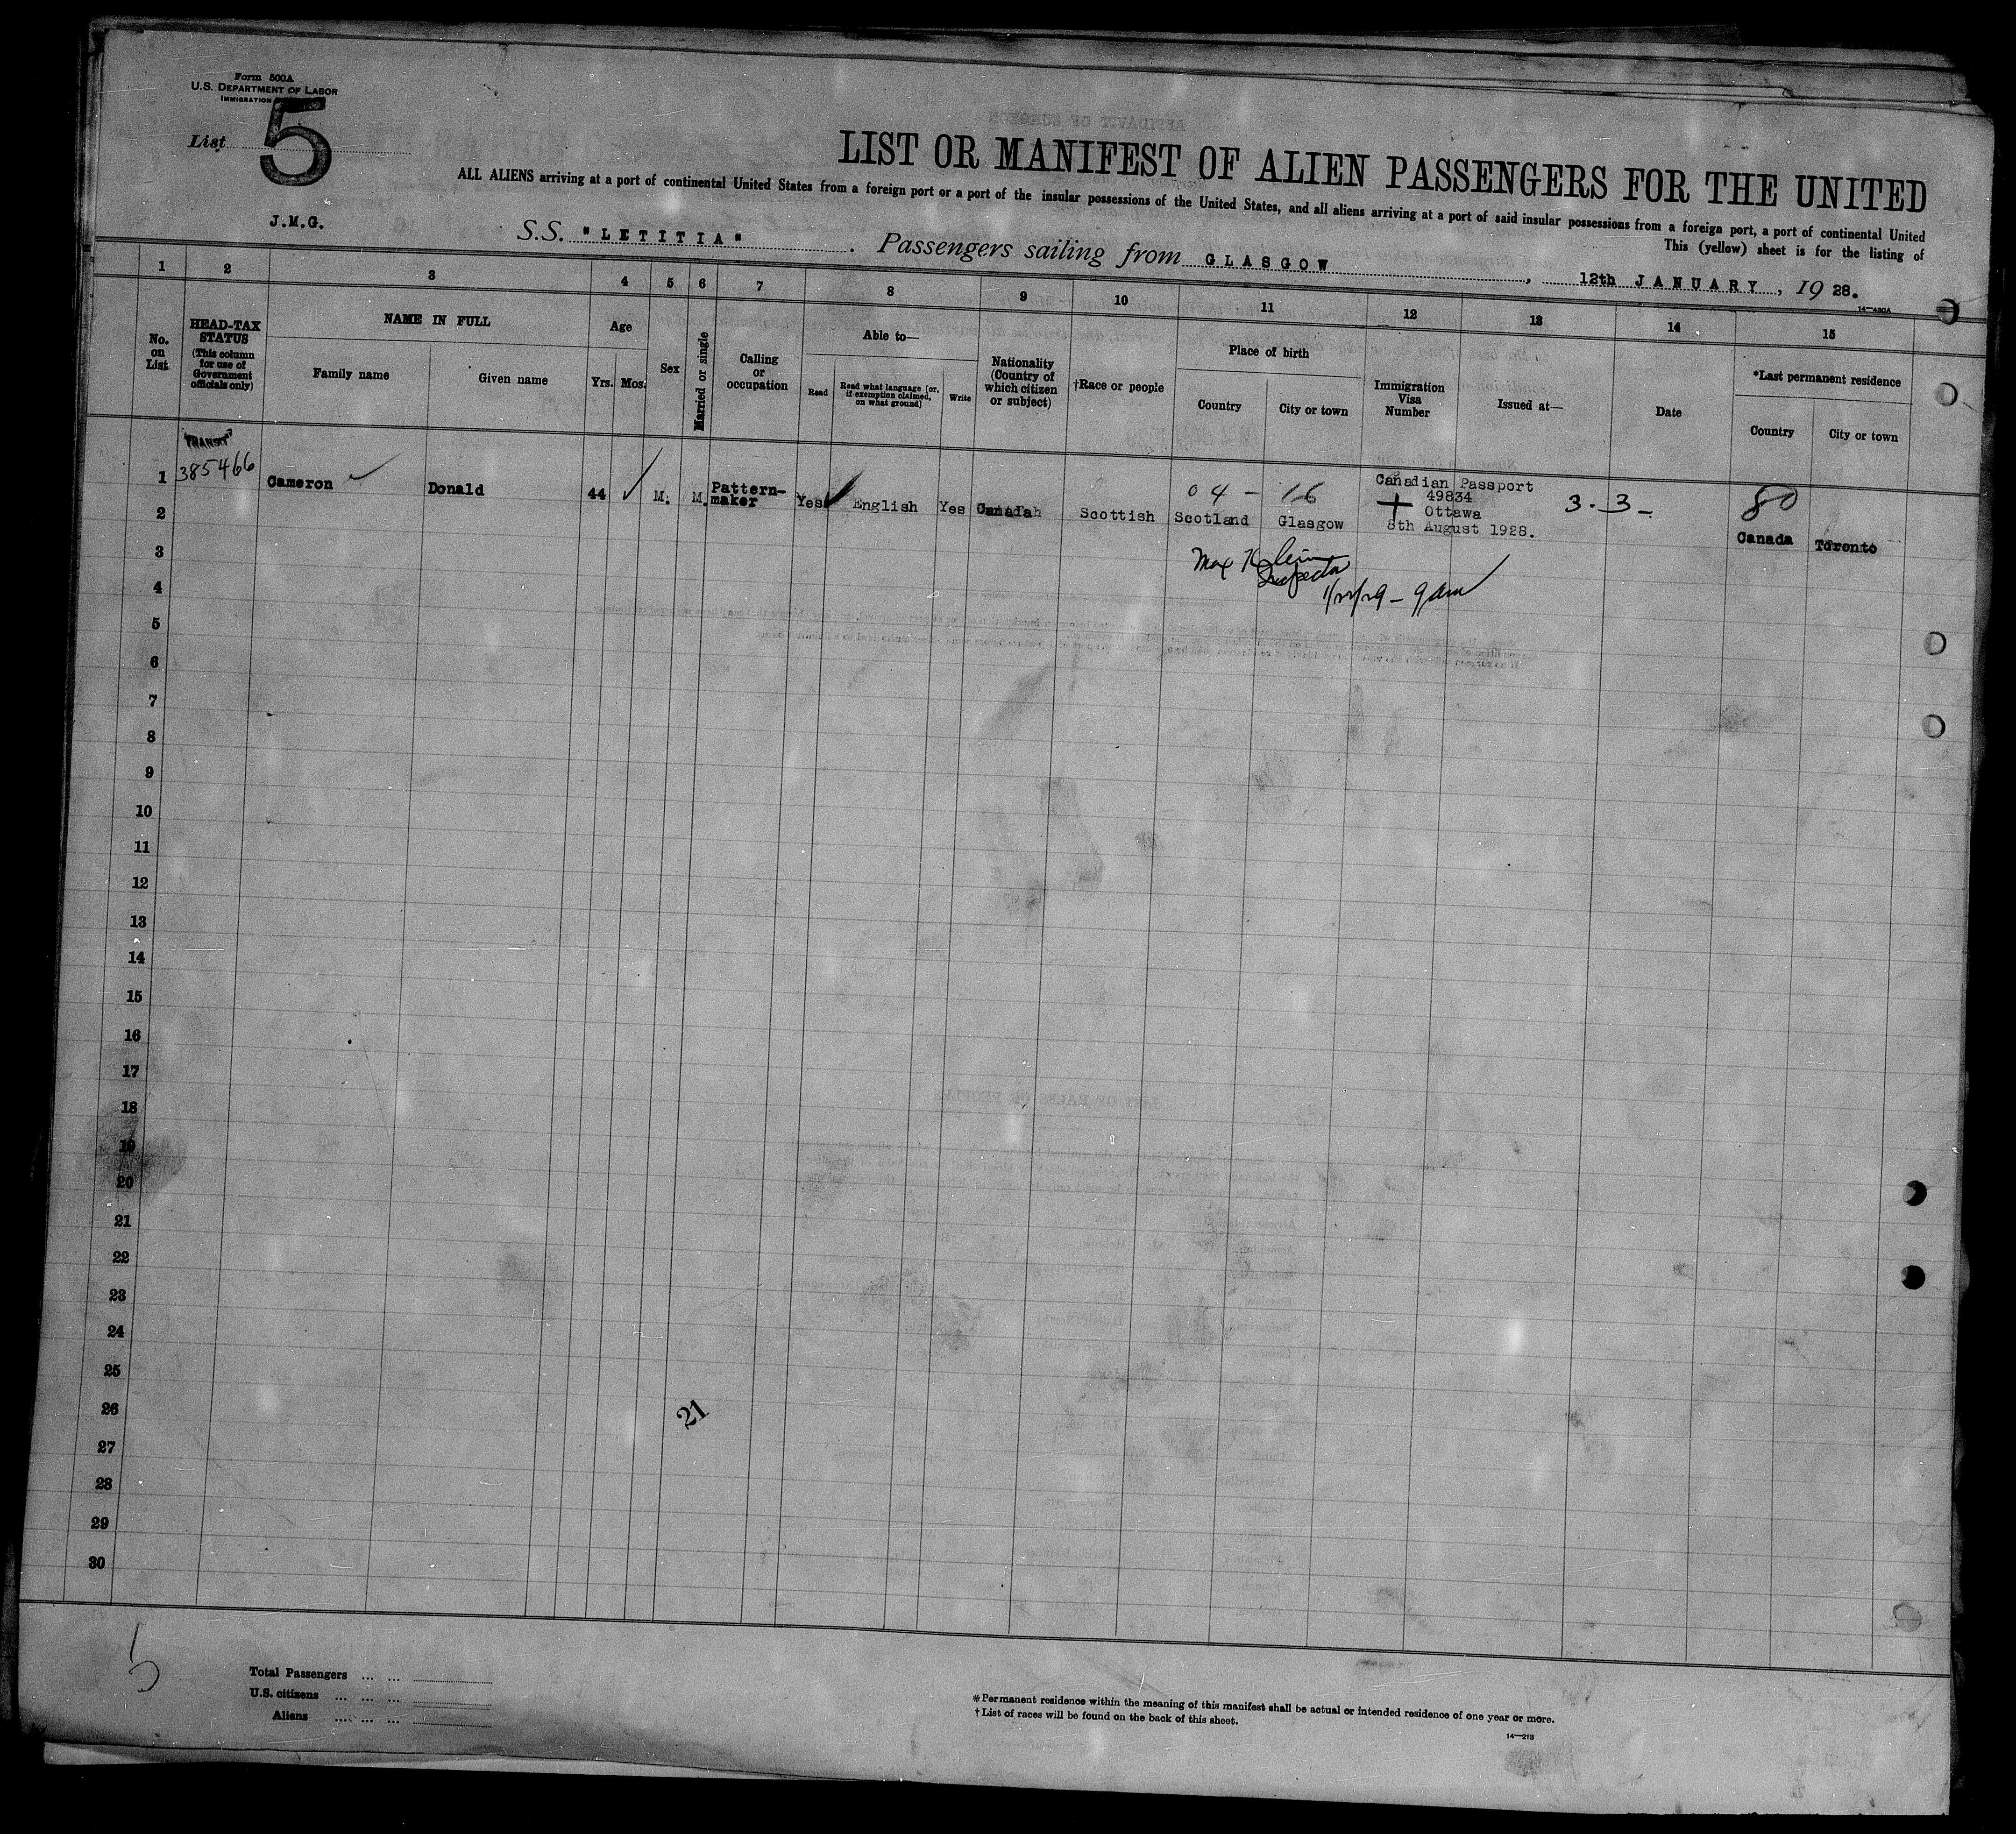 Form 500A
U.S. DEPARTMENT OF LABOR
IMMIGRATION
List 5
LIST OR MANIFEST OF ALIEN PASSENGERS FOR THE UNITED
ALL ALIENS arriving at a port of continental United States from a foreign port or a port of the insular possessions of the United States, and all aliens arriving at a port of said insular possessions from a foreign port, a port of continental United
This (yellow) sheet is for the listing of
J.M.G.
S.S. "LETITIA" . Passengers sailing from GLASGOW , 12th JANUARY , 19 28.
14—430A
1 2 3 4 5 6 7 8 9 10 11 12 13 14 15
No. on List
HEAD-TAX STATUS
(This column for use of Government officials only)
NAME IN FULL
Family name
Given name
Age
Yrs. Mos.
Sex
Married or single
Calling or occupation
Able to—
Read
Read what language [or, if exemption claimed, on what ground]
Write
Nationality (Country of which citizen or subject)
†Race or people
Place of birth
Country
City or town
Immigration Visa Number
Issued at—
Date
*Last permanent residence
Country
City or town
TRANSIT
385466
1 Cameron Donald 44 M. M. Pattern-maker Yes English Yes Canada Scottish Scotland Glasgow
04 - 16
Canadian Passport
49834
Ottawa
8th August 1928.
3. 3-
80
Canada Toronto
Inspector
1/22/29 - 9 am
2
3
4
5
6
7
8
9
10
11
12
13
14
15
16
17
18
19
20
21
22
23
24
25
26
27
28
29
30
21
5
Total Passengers ... ...
U.S. citizens ... ... ...
Aliens ... ... ...
*Permanent residence within the meaning of this manifest shall be actual or intended residence of one year or more.
†List of races will be found on the back of this sheet.
14—213